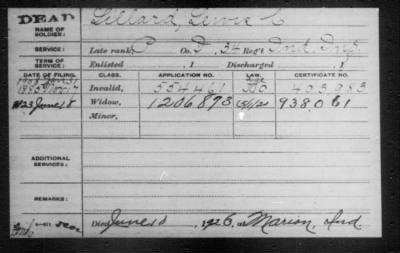 DEAD
NAME OF SOLDIER: Lillard, Lewis C
SERVICE: Late rank P Co. D, 34 Reg't Ind. Inf.
TERM OF SERVICE: Enlisted , 1 Discharged , 1
DATE OF FILING. CLASS. APPLICATION NO. LAW. CERTIFICATE NO.
1885 Nov. 7 Invalid, 554461 403983
June 18 Widow, 1206893 938061
Minor,
ADDITIONAL SERVICES:
REMARKS:
Died June 8 1926, at Marion, Ind.